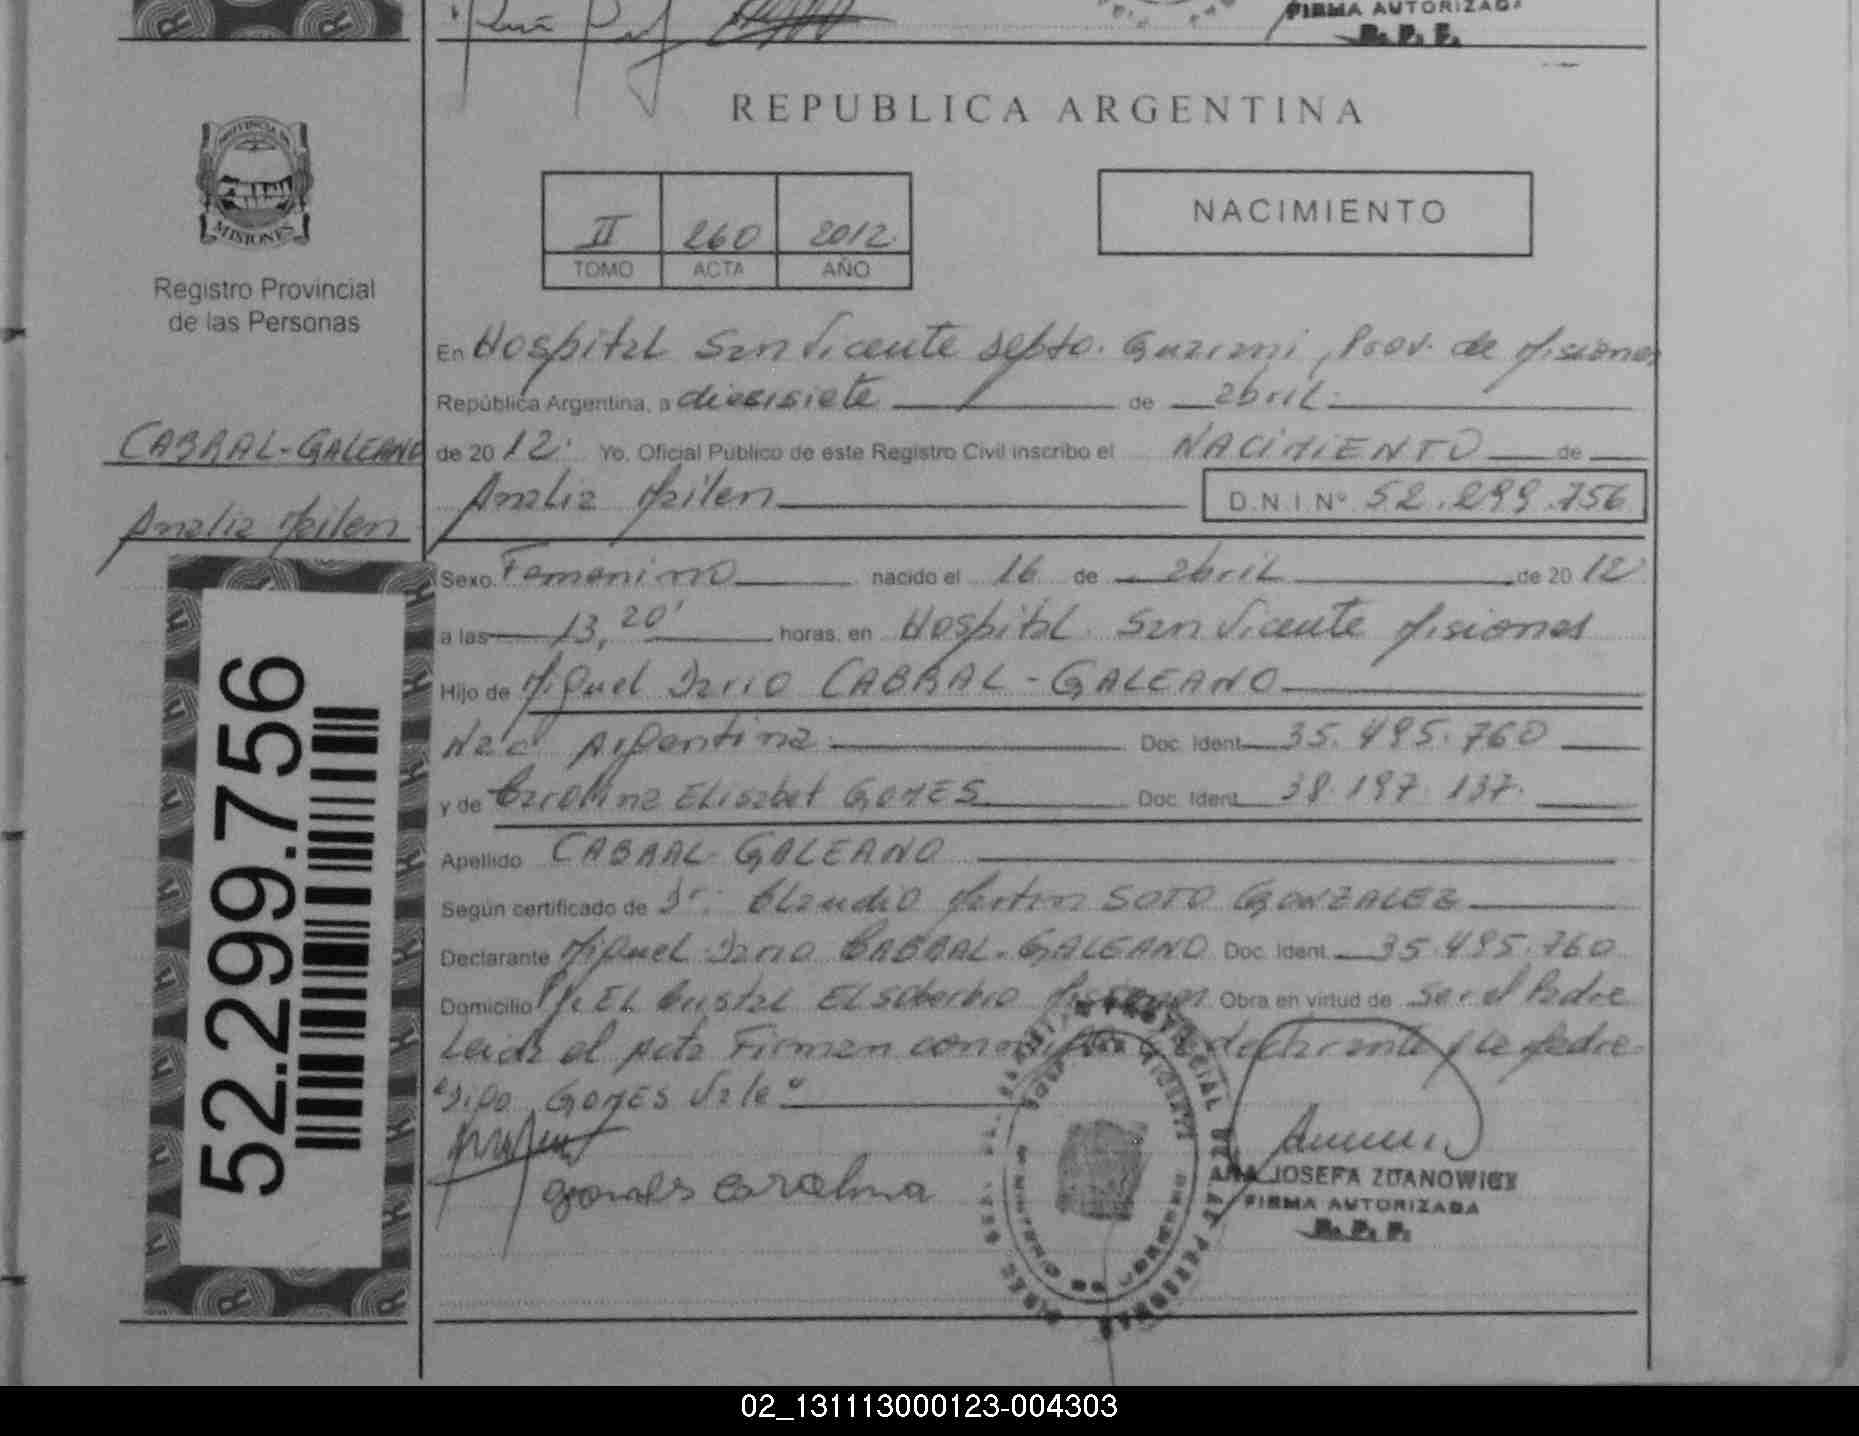 FIRMA AUTORIZADA
R. P. P.
REPUBLICA ARGENTINA
PROVINCIA DE
MISIONES
Registro Provincial
de las Personas
II 260 2012
TOMO ACTA AÑO
NACIMIENTO
En Hospital San Vicente Depto. Guarani, Prov. de Misiones
República Argentina, a diecisiete de abril
CABRAL-GALEANO
de 2012 Yo, Oficial Público de este Registro Civil inscribo el NACIMIENTO de
Analia Mailen
Analia Mailen D.N.I Nº 52.299.756
Sexo Femenino nacido el 16 de abril de 2012
a las 13,20' horas, en Hospital San Vicente Misiones
Hijo de Miguel Dario CABRAL-GALEANO
Nac. Argentina Doc. Ident. 35.495.760
y de Carolina Elisabet GOMES Doc. Ident. 38.197.137
Apellido CABRAL-GALEANO
Según certificado de Dr. Claudio Martin SOTO GONZALEZ
Declarante Miguel Dario CABRAL-GALEANO Doc. Ident. 35.495.760
Domicilio El Soberbio Misiones Obra en virtud de ser el Padre
Leida el Acta Firman declarante y la Madre
GOMES Vale
52.299.756
gomes carolina
ANA JOSEFA ZDANOWICZ
FIRMA AUTORIZADA
R. P. P.
02_131113000123-004303